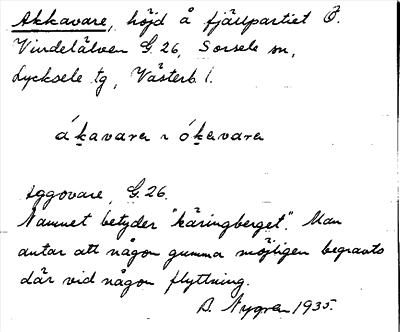 Akkavare, höjd å fjällpartiet Ö.
Vindelälven G. 26, Sorsele sn,
Lycksele tg, Västerb. l.
ákavara ~ ókavara
Aggovare, G. 26.
Namnet betyder "käringberget". Man
antar att någon gumma möjligen begravts
där vid någon flyttning.
B. Nygren 1935.